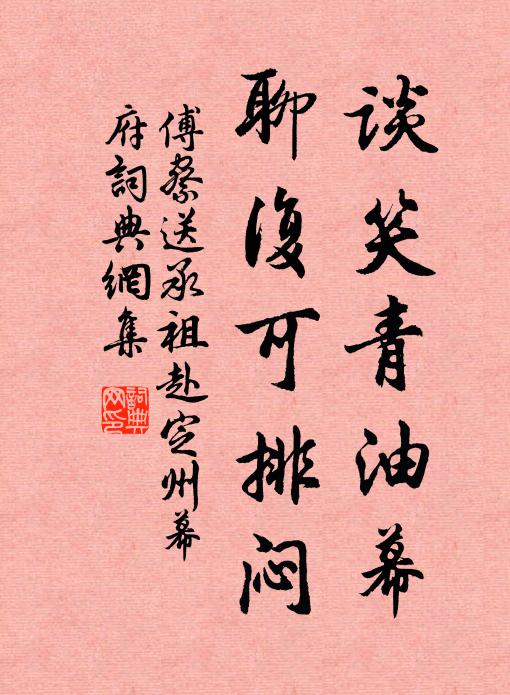 谈笑青油幕
聊復可排闷
傅察送承祖赴定州幕
府詞典網集
詞典
网印